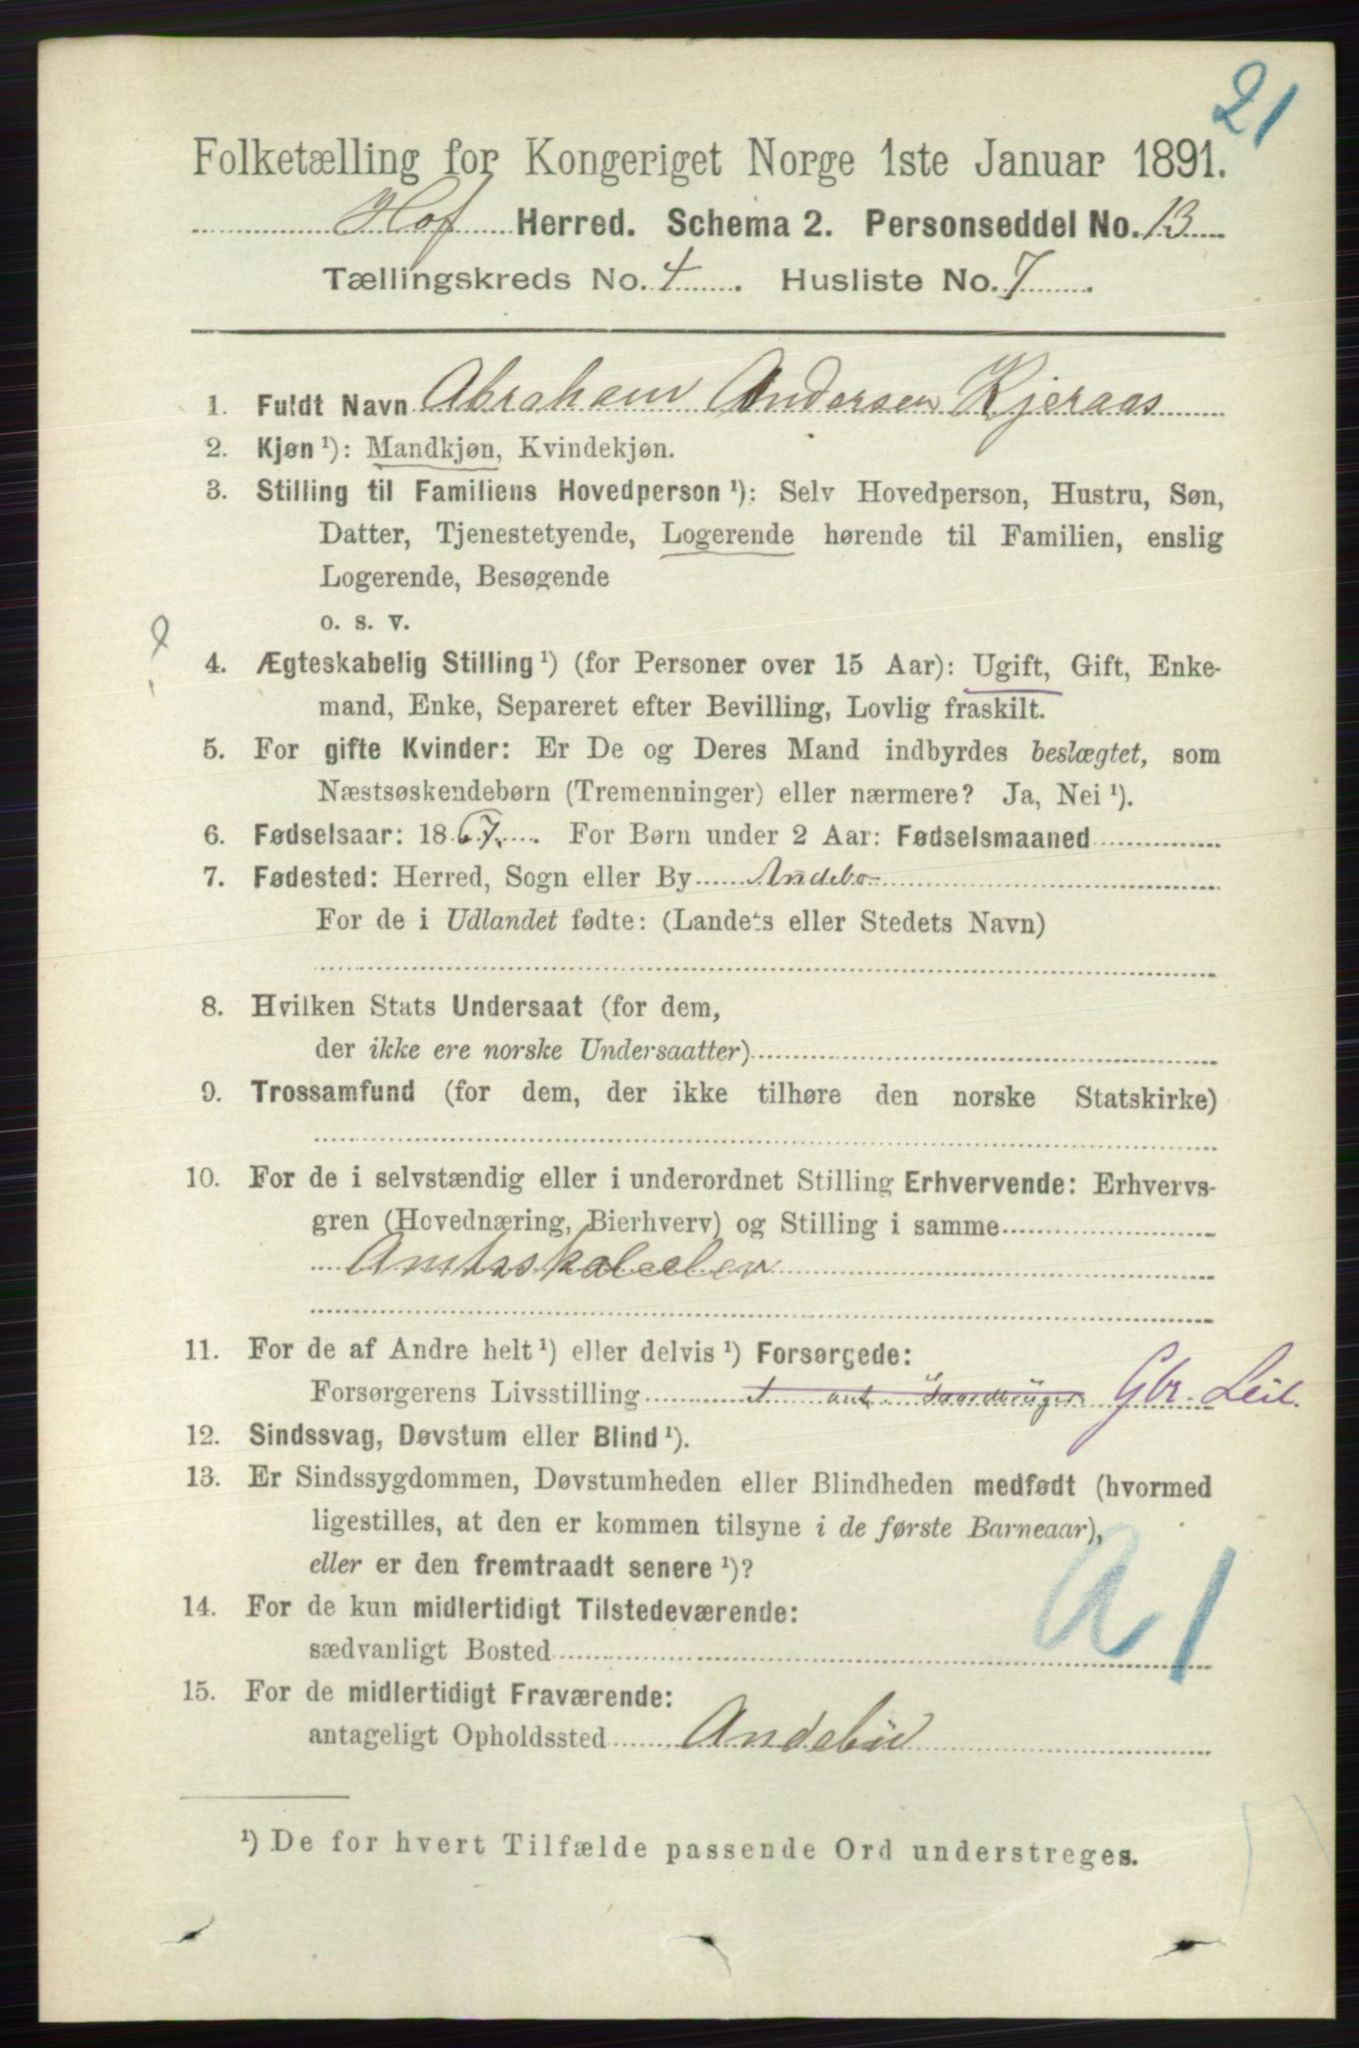 21
Folketælling for Kongeriget Norge 1ste Januar 1891.
Hof Herred. Schema 2. Personseddel No. 13
Tællingskreds No. 4. Husliste No. 7.
1. Fuldt Navn Abraham Andersen Kjeraas
2. Kjøn ¹): Mandkjøn, Kvindekjøn.
3. Stilling til Familiens Hovedperson ¹): Selv Hovedperson, Hustru, Søn,
Datter, Tjenestetyende, Logerende hørende til Familien, enslig
Logerende, Besøgende
o. s. v.
4. Ægteskabelig Stilling ¹) (for Personer over 15 Aar): Ugift, Gift, Enke-
mand, Enke, Separeret efter Bevilling, Lovlig fraskilt.
5. For gifte Kvinder: Er De og Deres Mand indbyrdes beslægtet, som
Næstsøskendebørn (Tremenninger) eller nærmere? Ja, Nei ¹).
6. Fødselsaar: 1867. For Børn under 2 Aar: Fødselsmaaned
7. Fødested: Herred, Sogn eller By Andebo
For de i Udlandet fødte: (Landets eller Stedets Navn)
8. Hvilken Stats Undersaat (for dem,
der ikke ere norske Undersaatter)
9. Trossamfund (for dem, der ikke tilhøre den norske Statskirke)
10. For de i selvstændig eller i underordnet Stilling Erhvervende: Erhvervs-
gren (Hovednæring, Bierhverv) og Stilling i samme
Amtsskoleelev
11. For de af Andre helt ¹) eller delvis ¹) Forsørgede:
Forsørgerens Livsstilling Gaardbruger Gbr. Leil.
12. Sindssvag, Døvstum eller Blind ¹).
13. Er Sindssygdommen, Døvstumheden eller Blindheden medfødt (hvormed
ligestilles, at den er kommen tilsyne i de første Barneaar),
eller er den fremtraadt senere ¹)?
A 1
14. For de kun midlertidigt Tilstedeværende:
sædvanligt Bosted
15. For de midlertidigt Fraværende:
antageligt Opholdssted Andebu
¹) De for hvert Tilfælde passende Ord understreges.